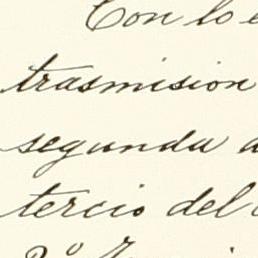 Con lo
trasmision
segunda
tercio del